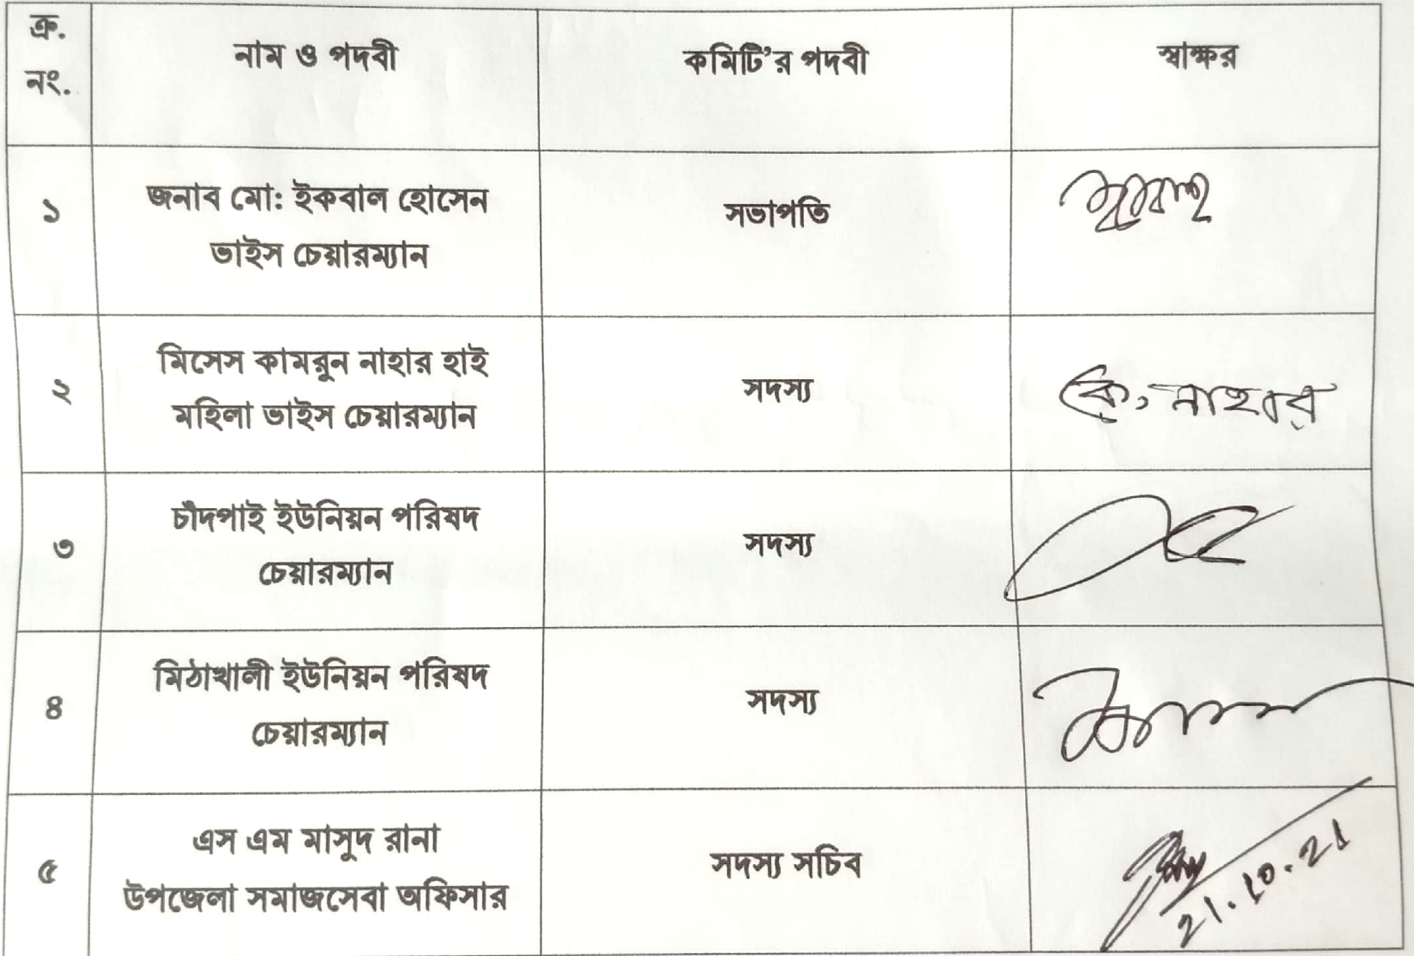 ক্র. নং.
নাম ও পদবী
কমিটি'র পদবী
স্বাক্ষর
১
জনাব মো: ইকবাল হোসেন
ভাইস চেয়ারম্যান
সভাপতি
২
মিসেস কামরুন নাহার হাই
মহিলা ভাইস চেয়ারম্যান
সদস্য
কে, নাহার
৩
চাঁদপাই ইউনিয়ন পরিষদ
চেয়ারম্যান
সদস্য
৪
মিঠাখালী ইউনিয়ন পরিষদ
চেয়ারম্যান
সদস্য
৫
এস এম মাসুদ রানা
উপজেলা সমাজসেবা অফিসার
সদস্য সচিব
21.10.21